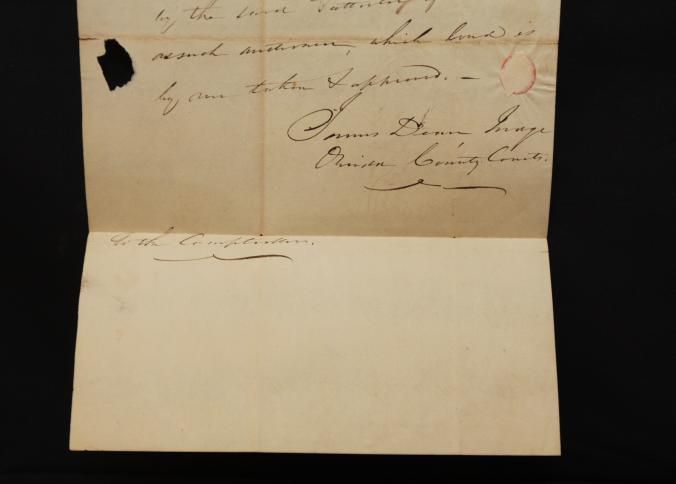 by the said
as such auctioneer, which bond is
by me taken & approved. —
James Dean Judge
Oneida County Courts.
To the Comptroller.